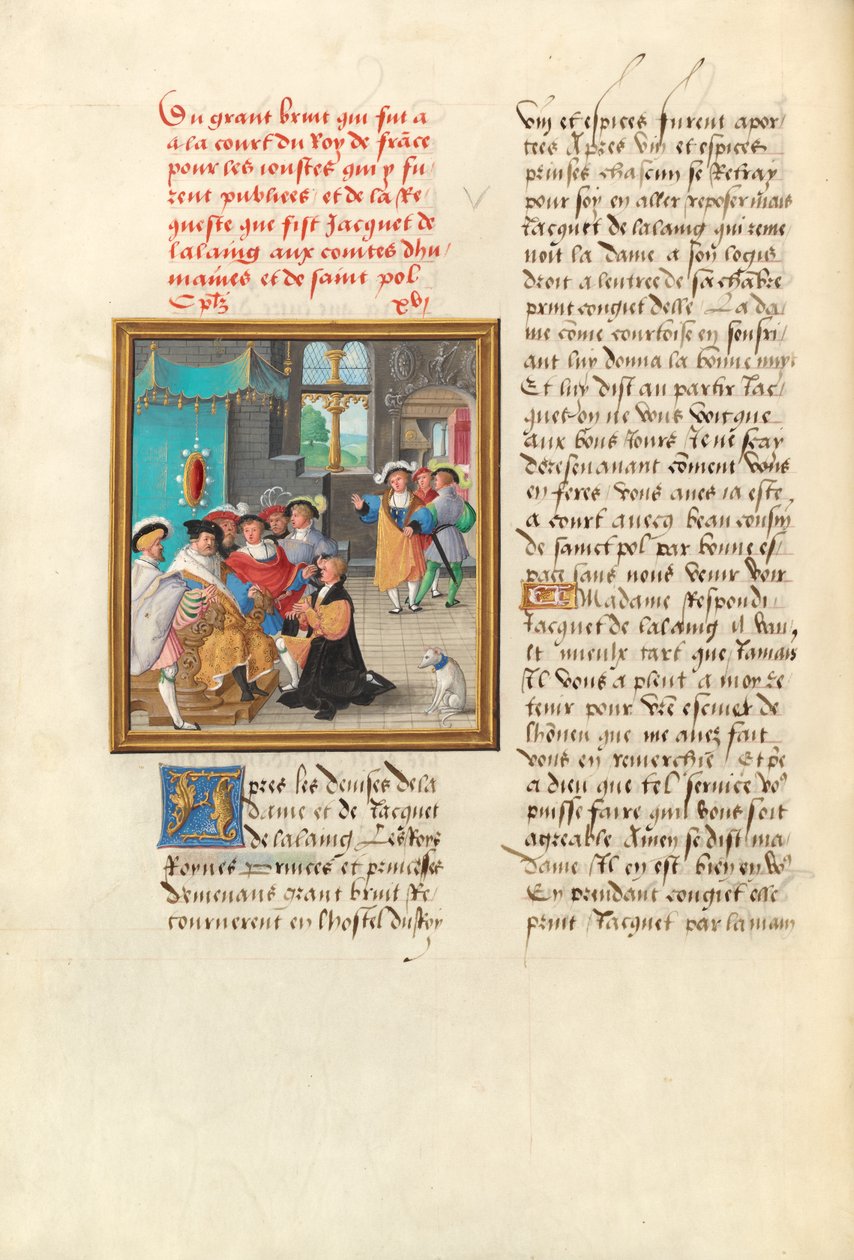 Du grant bruit qui fut a
a la court du Roy de frãce
pour les ioustes qui y fu/
rent publiees / et de la Re/
queste que fist Jacquet de
lalaing aux comtes dhu/
maines et de saint pol
C pl̃z xvi
Apres les deuises de la
dame et de Jacquet
de lalaing / Les Roys
Roynes Princes et princesses
demenans grant bruit Re/
tournerent en lhostel du Roy
vin et espices furent apor/
tees Apres vin et espices
prinses chascun se Retray
pour soy en aller reposer mais
Jacquet de lalaing qui reme/
noit la dame a son logis
droit a lentree de sa chãbre
print congiet delle / La da/
me cõme courtoise en soufri/
ant luy donna la bonne nuyt
Et luy dist au partir Jac/
ques on ne vous voit que
aux bons Jours Je ne scay
doresenauant cõment vous
en feres / vous aues ia este
a court auecq beau cousin
de sainct pol par bonne es/
pace sans nous venir voir
Madame Respondi
Jacquet de lalaing il vau/
lt mieulx tart que Jamais
Il vous a pleut a moy re/
tenir pour vr̃e escuier de
lhõneur que me auez fait
vous en remerchie / Et p̃e
a dieu que tel seruice vo⁹
puisse faire quil vous soit
agreable Amen se dist ma/
dame / Il en est bien en vo⁹
En prendant congiet elle
print Jacquet par la main